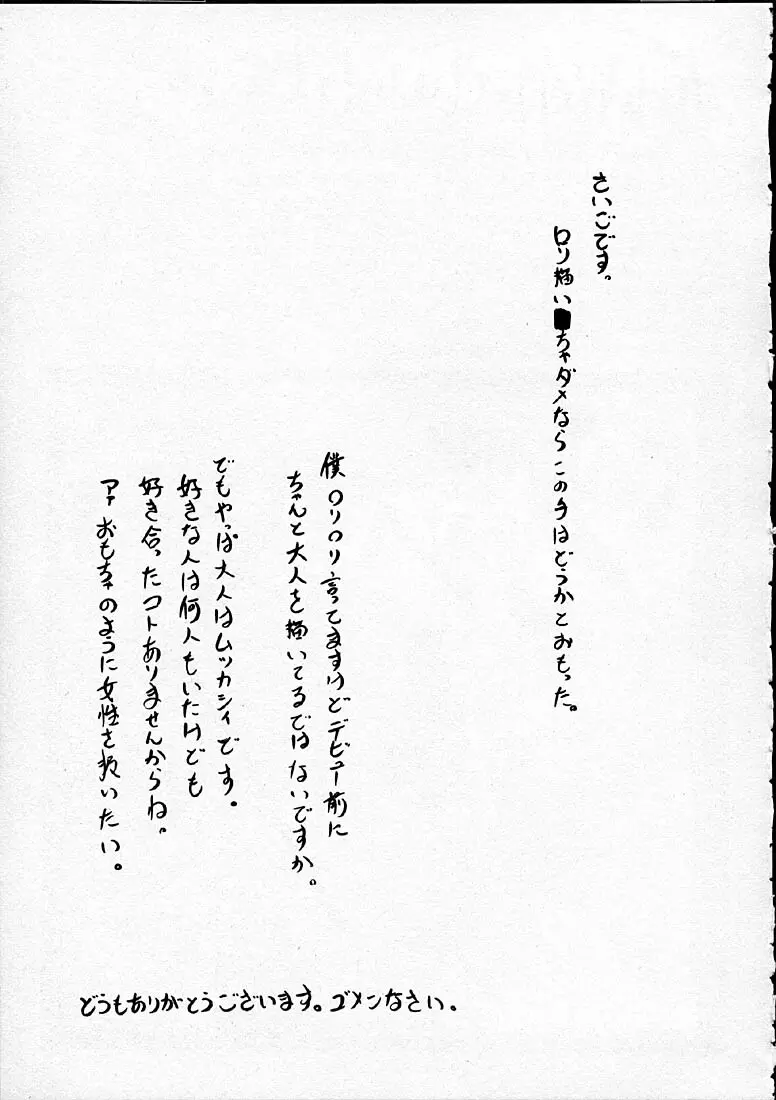 さいごです。
ロリ描いちゃダメならこの手はどうかとおもった。
僕ロリロリ言ってますけどデビュー前に
ちゃんと大人を描いてるではないですか。
でもやっぱ大人はムッカシイです。
好きな人は何人もいたけども
好き合ったコトありませんからね。
アァ おもちゃのように女性を扱いたい。
どうもありがとうございます。ゴメンなさい。